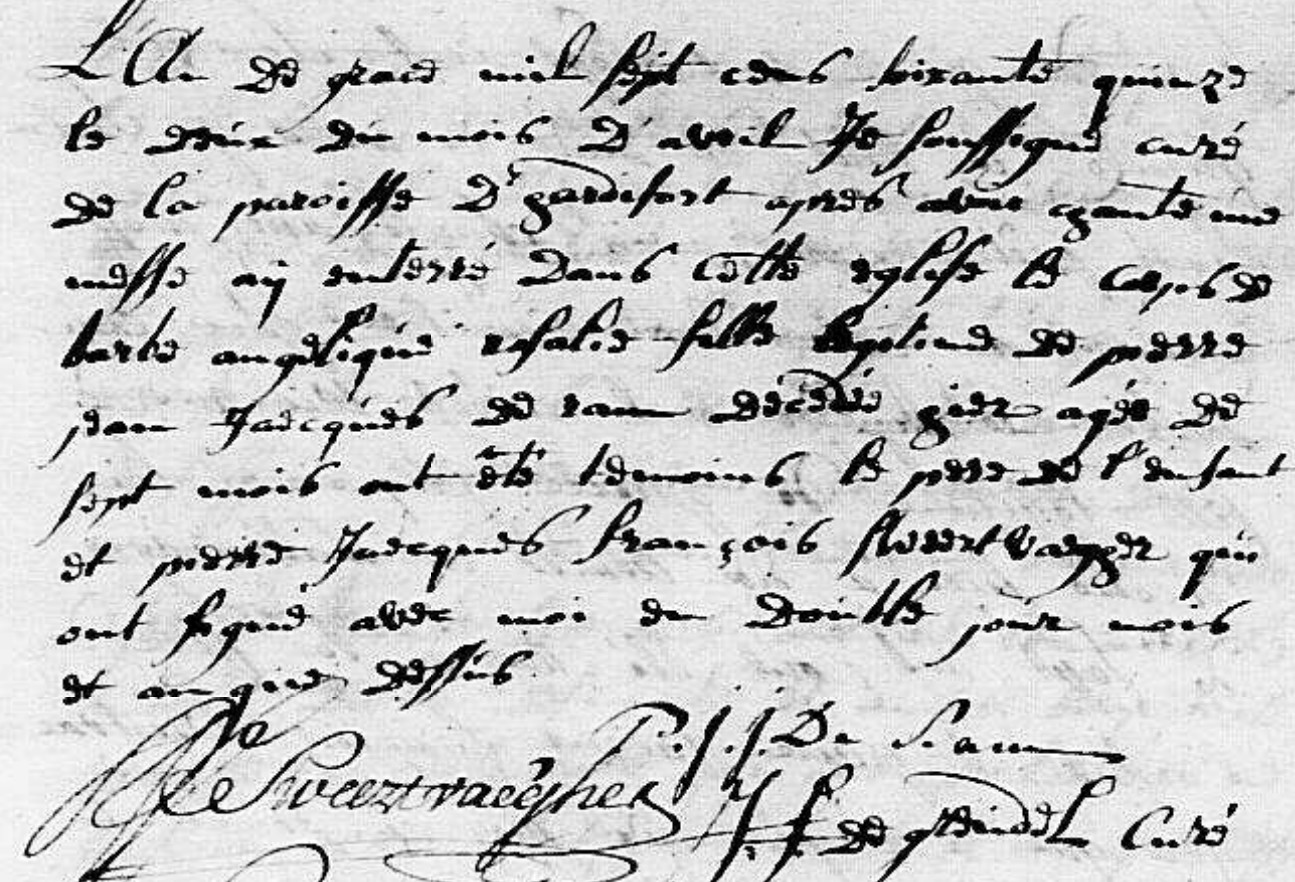 L'An de grace mil sept cens soixante quinze
le deux du mois D'avril Je soussigné curé
de la paroisse D'hardifort apres avoir chanté une
messe aÿ enterré dans cette eglise le corps de
barbe angelique rosalie fille legitime de pierre
jean Jaecques de ram décedée hier agée de
sept mois ont été temoins le pere de l'enfant
et pierre Jaecques françois qui
ont signé avec moi en double jour mois
et an que dessus
P. J. J. De Ram
J. f. de curé